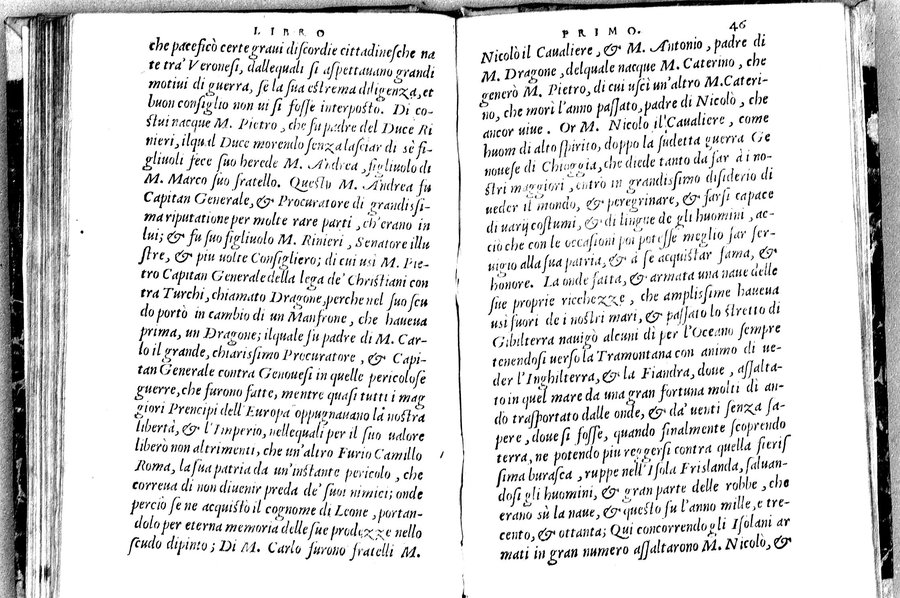 LIBRO
che paceficò certe graui discordie cittadinesche na
te tra' Veronesi, dallequali si aspettauano grandi
motiui di guerra, se la sua estrema diligenza, et
buon consiglio non ui si fosse interposto. Di co
stui nacque M. Pietro, che fu padre del Duce Ri
nieri, ilqual Duce morendo senza lasciar di sè fi-
gliuoli fece suo herede M. Andrea, figliuolo di
M. Marco suo fratello. Questo M. Andrea fu
Capitan Generale, & Procuratore di grandissi-
ma riputatione per molte rare parti, ch'erano in
lui; & fu suo figliuolo M. Rinieri, Senatore illu
stre, & piu uolte Consigliero; di cui usì M. Pie-
tro Capitan Generale della lega de' Christiani con
tra Turchi, chiamato Dragone, perche nel suo scu
do portò in cambio di un Manfrone, che haueua
prima, un Dragone; ilquale fu padre di M. Car-
lo il grande, chiarissimo Procuratore, & Capi-
tan Generale contra Genouesi in quelle pericolose
guerre, che furono fatte, mentre quasi tutti i mag
giori Prencipi dell'Europa oppugnauano la nostra
libertà, & l'Imperio, nellequali per il suo ualore
liberò non altrimenti, che un'altro Furio Camillo
Roma, la sua patria da un'instante pericolo, che
correua di non diuenir preda de' suoi nimici; onde
perciò se ne acquistò il cognome di Leone, portan-
dolo per eterna memoria delle sue prodezze nello
scudo dipinto; Di M. Carlo furono fratelli M.
PRIMO. 46
Nicolò il Caualiere, & M. Antonio, padre di
M. Dragone, delquale nacque M. Caterino, che
generò M. Pietro, di cui uscì un'altro M. Cateri-
no, che morì l'anno passato, padre di Nicolò, che
ancor uiue. Or M. Nicolò il Caualiere, come
huom di alto spirito, doppo la sudetta guerra Ge
nouese di Chioggia, che diede tanto da far à i no-
stri maggiori, entrò in grandissimo disiderio di
ueder il mondo, & peregrinare, & farsi capace
di uarij costumi, & di lingue de gli huomini, ac-
ciò che con le occasioni poi potesse meglio far ser-
uigio alla sua patria, & à se acquistar fama, &
honore. La onde fatta, & armata una naue delle
sue proprie ricchezze, che amplissime haueua
usì fuori de i nostri mari, & passato lo stretto di
Gibilterra nauigò alcuni dì per l'Oceano sempre
tenendosi uerso la Tramontana con animo di ue-
der l'Inghilterra, & la Fiandra, doue, assalta-
to in quel mare da una gran fortuna molti dì an-
dò trasportato dalle onde, & da' uenti senza sa-
pere, doue si fosse, quando finalmente scoprendo
terra, ne potendo piu reggersi contra quella fieris
sima burasca, ruppe nell'Isola Frislanda, saluan-
dosi gli huomini, & gran parte delle robbe, che
erano sù la naue, & questo fu l'anno mille, e tre-
cento, & ottanta; Qui concorrendo gli Isolani ar
mati in gran numero assaltarono M. Nicolò, &